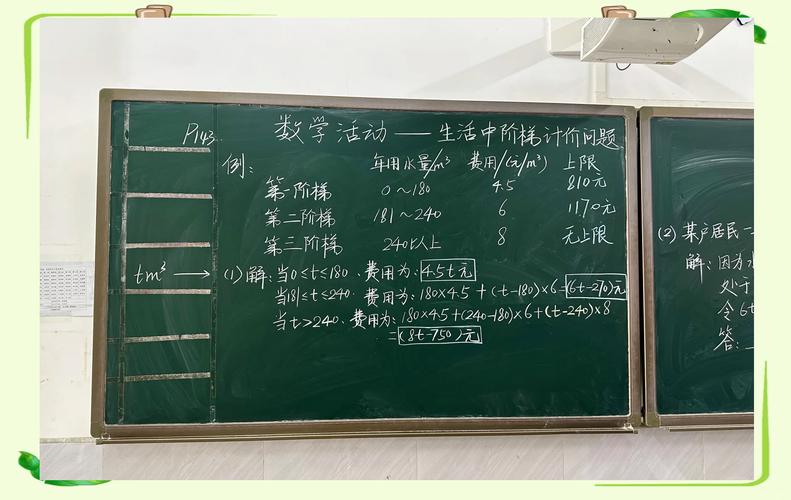 P143 数学活动——生活中阶梯计价问题
例: 年用水量/m³ 费用/(元/m³) 上限
第一阶梯 0~180 4.5 810元
第二阶梯 181~240 6 1170元
第三阶梯 240以上 8 无上限
tm³→(1)解:当0≤t≤180、费用为:4.5t元
当181≤t≤240、费用为:180×4.5+(t-180)×6=(6t-270)元
当t>240、费用为:180×4.5+(240-180)×6+(t-240)×8
=(8t-750)元
(2)某户居民一
解:因为
处于
令6t
答: